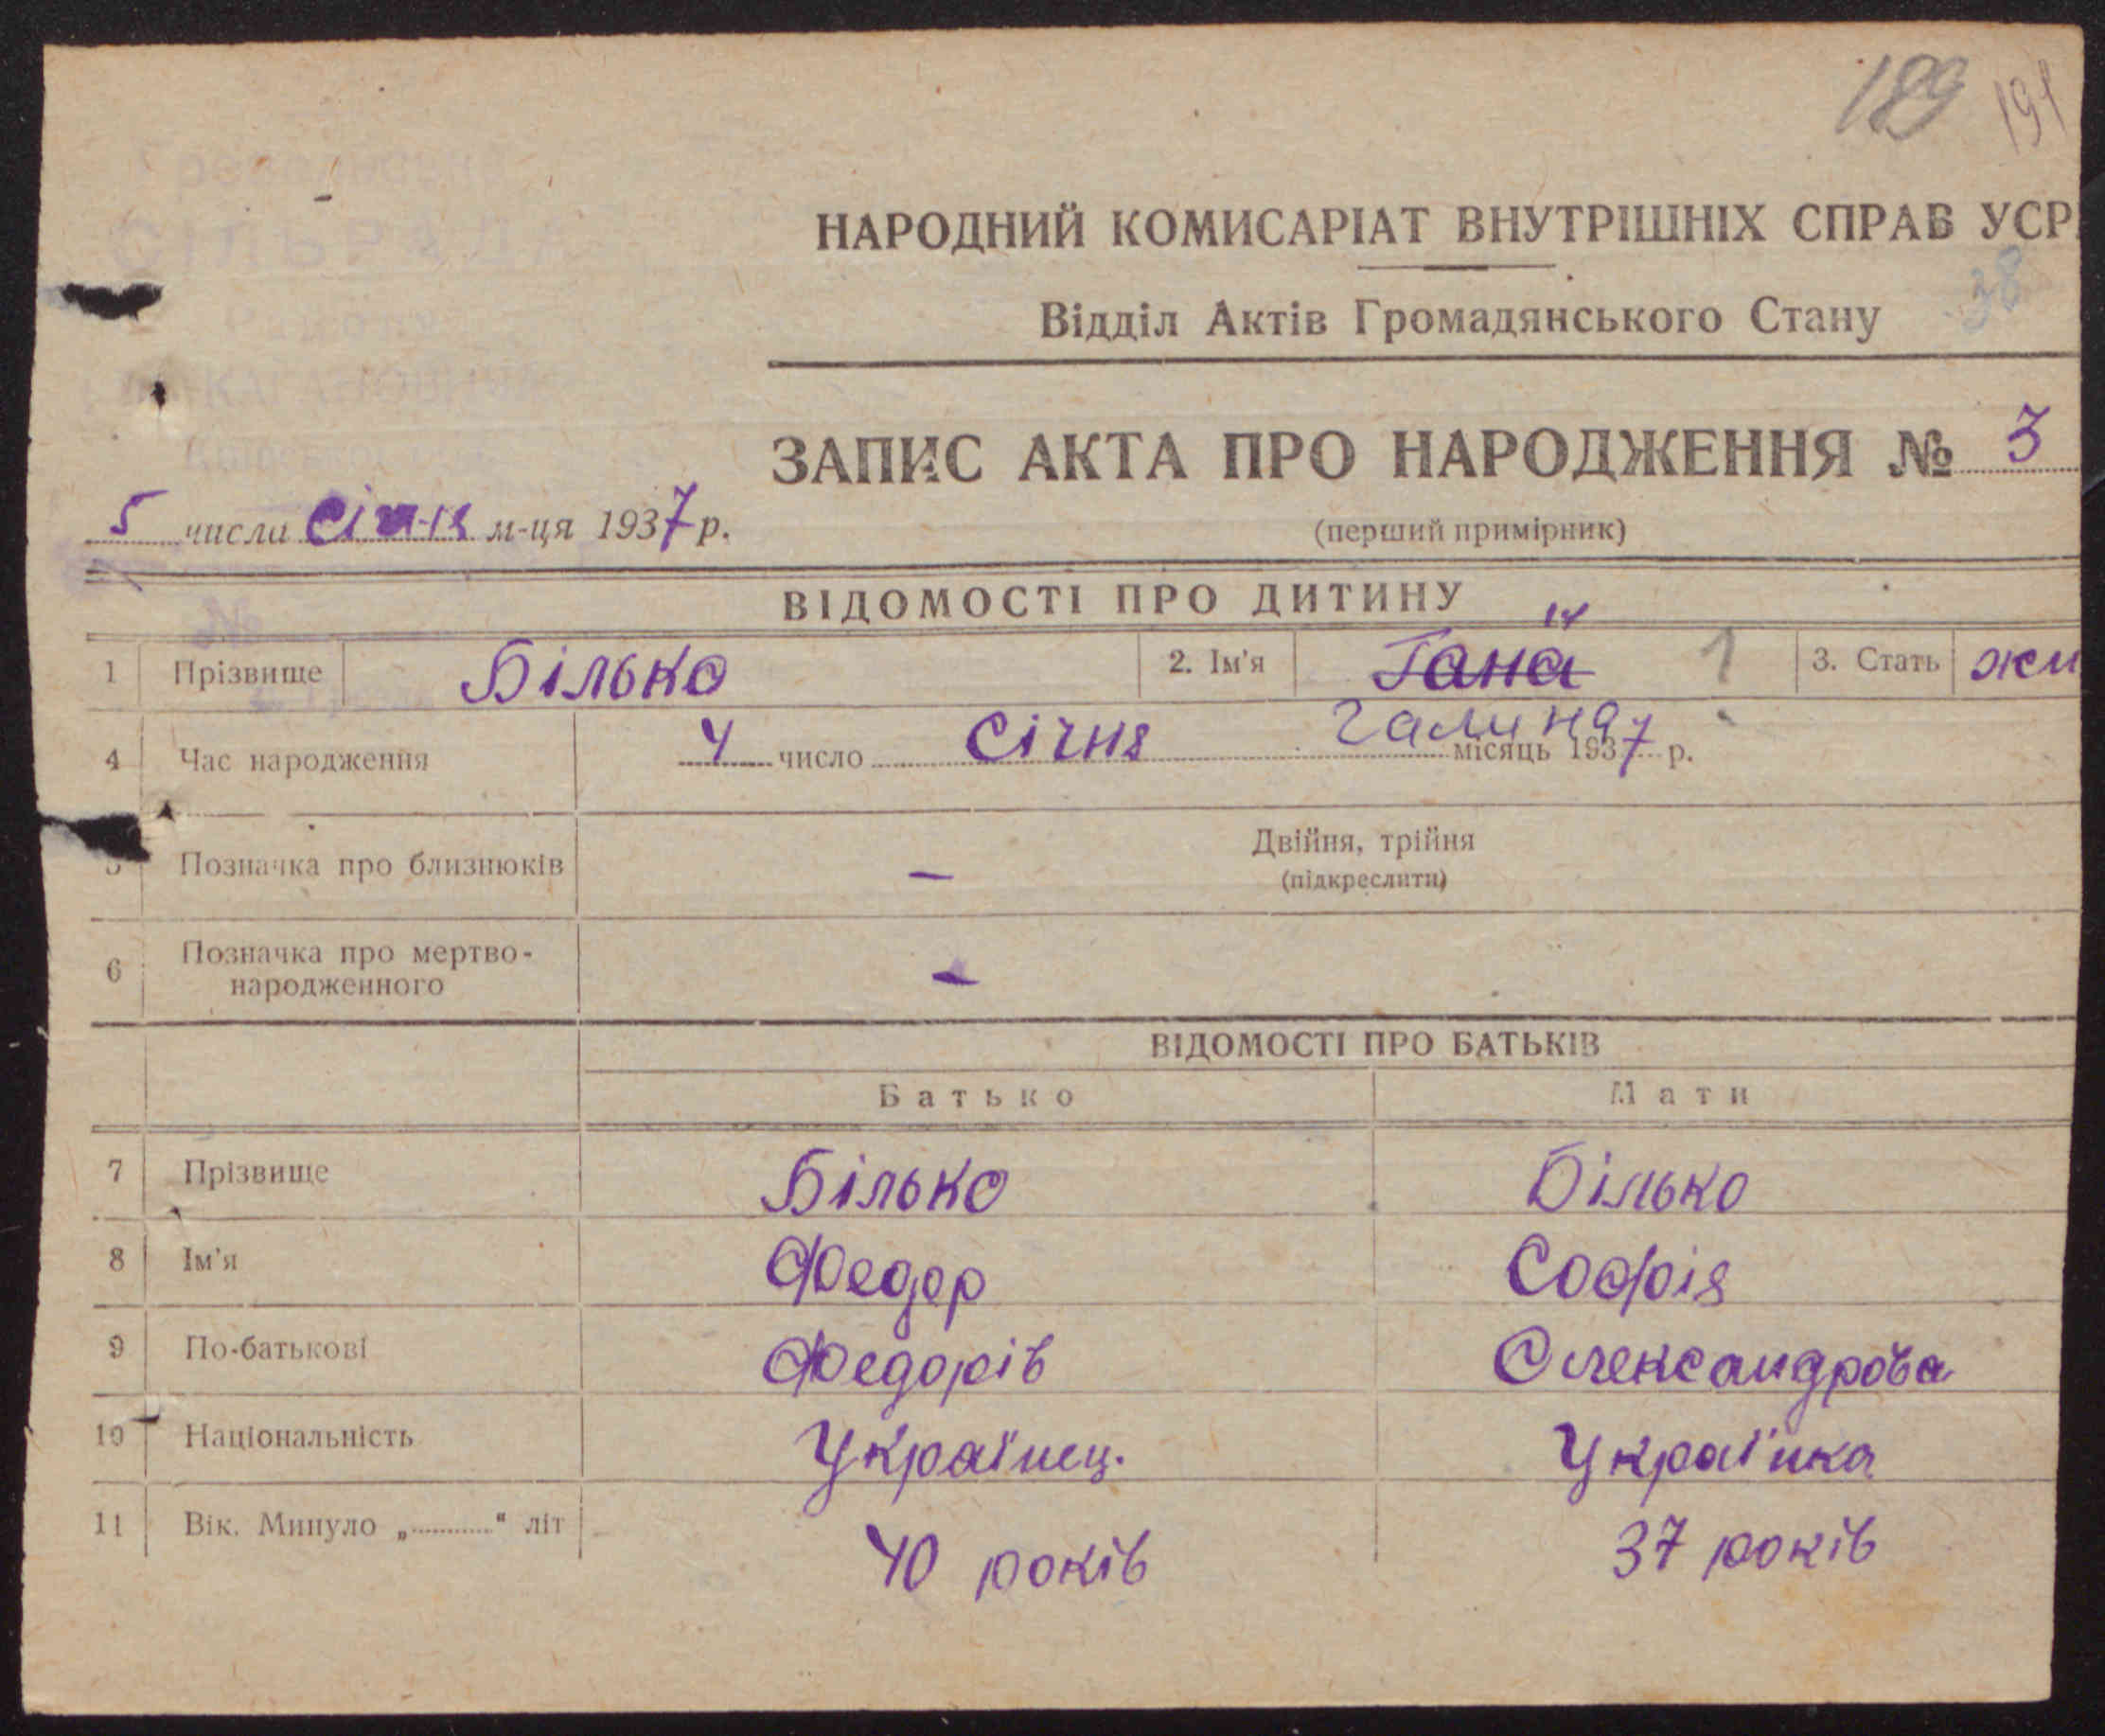 189 191
СІЛЬРАДА
НАРОДНИЙ КОМИСАРІАТ ВНУТРІШНІХ СПРАВ УСР
38
Відділ Актів Громадянського Стану
КАГАНОВИЧА
ЗАПИС АКТА ПРО НАРОДЖЕННЯ № 3
5 числа січня м-ця 1937 р.
(перший примірник)
ВІДОМОСТІ ПРО ДИТИНУ
№
1 Прізвище Білько 2. Ім'я Ганя 1 3. Стать жи
Галина
4 Час народження 4 число Січня місяць 1937 р.
5 Позначка про близнюків – Двійня, трійня
(підкреслити)
6 Позначка про мертво-
народженного –
ВІДОМОСТІ ПРО БАТЬКІВ
Батько Мати
7 Прізвище Білько Білько
8 Ім'я Федор Софія
9 По-батькові Федорів Олександрова
10 Національність Українец. Українка
11 Вік. Минуло „..........“ літ 40 років 37 років